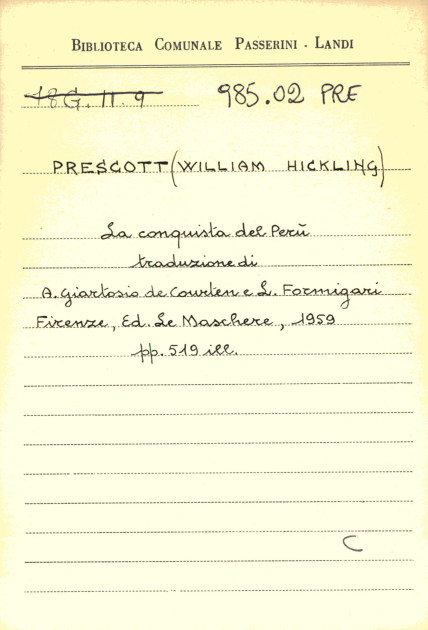 BIBLIOTECA COMUNALE PASSERINI - LANDI
18 G. II. 9 985.02 PRE
PRESCOTT (WILLIAM HICKLING)
La conquista del Perù
traduzione di
A. Giartosio de Courten e L. Formigari
Firenze, Ed. Le Maschere, 1959
pp. 519 ill.
C